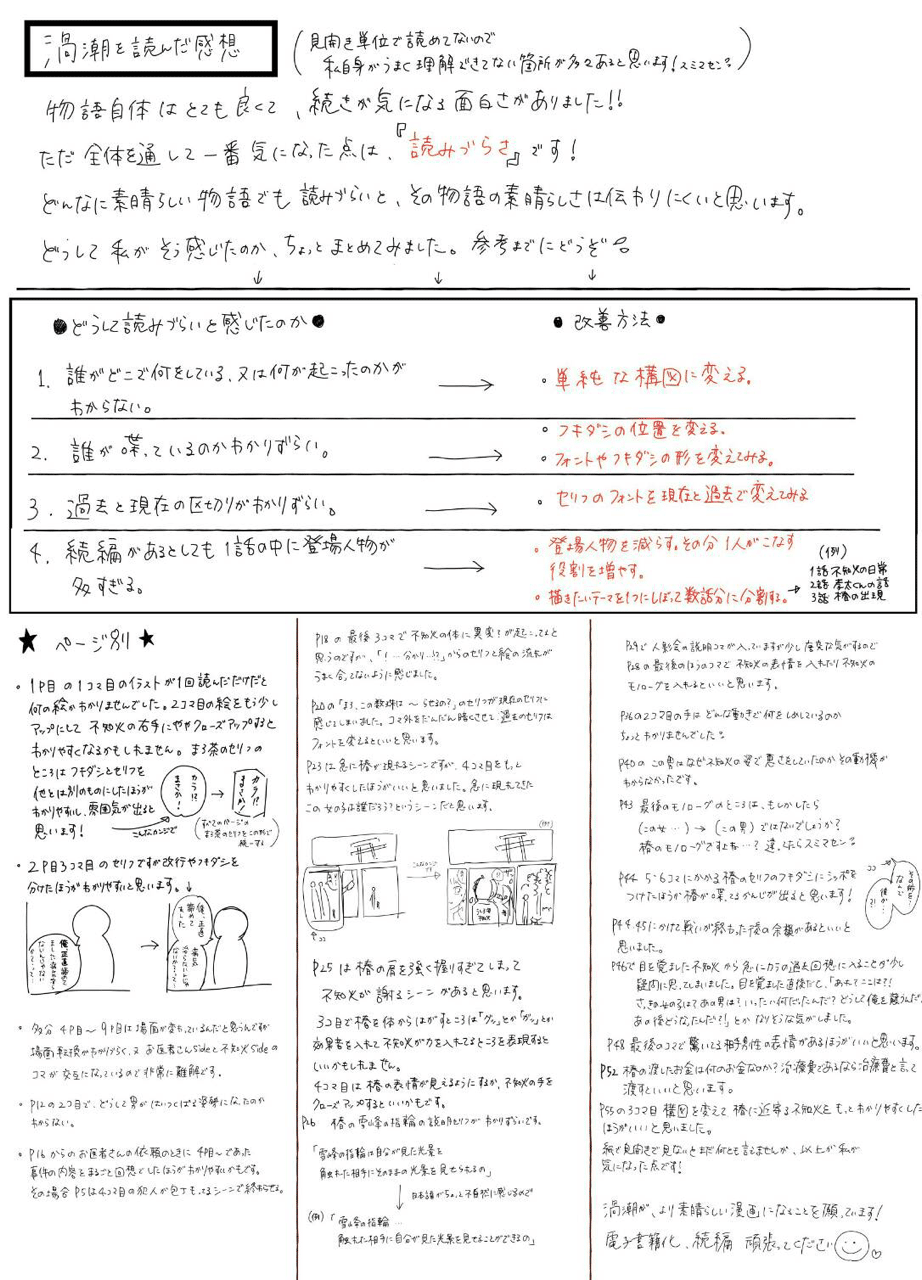 渦潮を読んだ感想
(見開き単位で読めてないので
私自身がうまく理解できてない箇所が多々あると思います!スミマセン。)
物語自体はとても良くて、続きが気になる面白さがありました!!
ただ全体を通して一番気になった点は、『読みづらさ』です!
どんなに素晴らしい物語でも読みづらいと、その物語の素晴らしさは伝わりにくいと思います。
どうして私がそう感じたのか、ちょっとまとめてみました。参考までにどうぞ。
↓ ↓ ↓
●どうして読みづらいと感じたのか●
●改善方法●
1. 誰がどこで何をしている、又は何が起こったのかが
わからない。
→
・単純な構図に変える。
2. 誰が喋っているのかわかりずらい。
→
・フキダシの位置を変える。
・フォントやフキダシの形を変えてみる。
3. 過去と現在の区切りがわかりずらい。
→
・セリフのフォントを現在と過去で変えてみる
4. 続編があるとしても1話の中に登場人物が
多すぎる。
→
・登場人物を減らす。その分1人がこなす
役割を増やす。
・描きたいテーマを1つにしぼって数話分に分割する。→
(例)
1話 不知火の日常
2話 李太くんの話
3話 椿の出現
★ ページ別 ★
・1P目の1コマ目のイラストが1回読んだだけだと
何の絵かわかりませんでした。2コマ目の絵をもう少し
アップにして不知火の右手にややクローズアップすると
わかりやすくなるかもしれません。まろ茶のセリフの
ところはフキダシとセリフを
他とは別のものにしたほうが
わかりやすいし、雰囲気が出ると
思います!
カラ!?
まさか!
→
カラ!?
まさか!
こんなカンジで
(すべてのページの
まろ茶のセリフをこの形で
統一する)
・2P目3コマ目のセリフですが改行やフキダシを
分けたほうがわかりやすいと思います。↓
→
・多分4P目〜9P目は場面が変わっているんだと思うんですが
場面転換がわかりづらく、又お医者さんsideと不知火sideの
コマが交互になっているので非常に難解です。
・P12の2コマ目で、どうして男がはいつくばる姿勢になったのか
わからない。
・P16からのお医者さんの依頼のときに4P目〜であった
事件の内容をまるごと回想でしたほうがわかりやすいかもです。
その場合P5は4コマ目の犯人が包丁もってるシーンで終わらせる。
P18の最後3コマで不知火の体に異変?が起こってると
思うのですが、「!…分かり…!?」からのセリフと絵の流れが
うまく合ってないように感じました。
P20の「まう、この数珠は〜らせるの?」のセリフが現在のセリフに
感じてしまいました。コマ外をだんだん暗くさせて、過去のセリフは
フォントを変えるといいと思います。
P23は急に椿が現れるシーンですが、4コマ目をもっと
わかりやすくしたほうがいいと思いました。急に現れてきた
この女の子は誰だろう?というシーンだと思います。
こんなカンジです
→
(例)
↑ココ
P25は椿の肩を強く握りすぎてしまって
不知火が謝るシーンがあると思います。
3コマ目で椿を体からはがすところは「グッ」とか「ガッ」とか
効果音を入れて不知火が力を入れてるところを表現すると
いいかもしれません。
4コマ目は椿の表情が見えるようにするか、不知火の手を
クローズアップするといいかもです。
P26 椿の雪峰の指輪の説明セリフがわかりずらいです。
「雪峰の指輪は自分が見た光景を
触れた相手にそのままの光景を見せられるの」
↓日本語がちょっと不自然に感じるので
(例)「雪峰の指輪…
触れた相手に自分が見た光景を見せることができるの」
P29で人影会の説明コマが入っていますが少し唐突な気がするので
P28の最後のほうのコマで不知火の表情を入れたり不知火の
モノローグを入れるといいと思います。
P36の2コマ目の手はどんな動きで何をしめしているのか
ちょっとわかりませんでした。
P40のこの男はなぜ不知火の姿で悪さをしていたのかその動機が
わからなかったです。
P43 最後のモノローグのところは、もしかしたら
(この女…)→(この男)ではないでしょうか?
椿のモノローグですよね…?違ったらスミマセン。
P44 5・6コマにかかる椿のセリフのフキダシにシッポを
つけたほうが椿が喋ってるかんじが出ると思います!
ココ
P44.45にかけて戦いが終わった後の余韻があるといいと
思いました。
P46で目を覚ました不知火から急にカラの過去回想に入ることが少し
疑問に思ってしまいました。目を覚ました直後だし、「あれ?ここは?!
さっきの女の子は?あの男は?いったい何だったんだ?どうして俺を襲うんだ、
あの後どうなったんだ?!」とかなりそうな気がしました。
P48 最後のコマで驚いてる相手男性の表情があるほうがいいと思います。
P52 椿の渡したお金は何のお金なのか?治療費であるなら治療費と言って
渡すといいと思います。
P55の3コマ目 構図を変えて椿に近寄る不知火をもっとわかりやすくした
ほうがいいと思いました。
紙で見開きで見ないとまだ何とも言えませんが、以上が私が
気になった点です!
渦潮が、より素晴らしい漫画になることを願っています!
電子書籍化、続編 頑張ってください